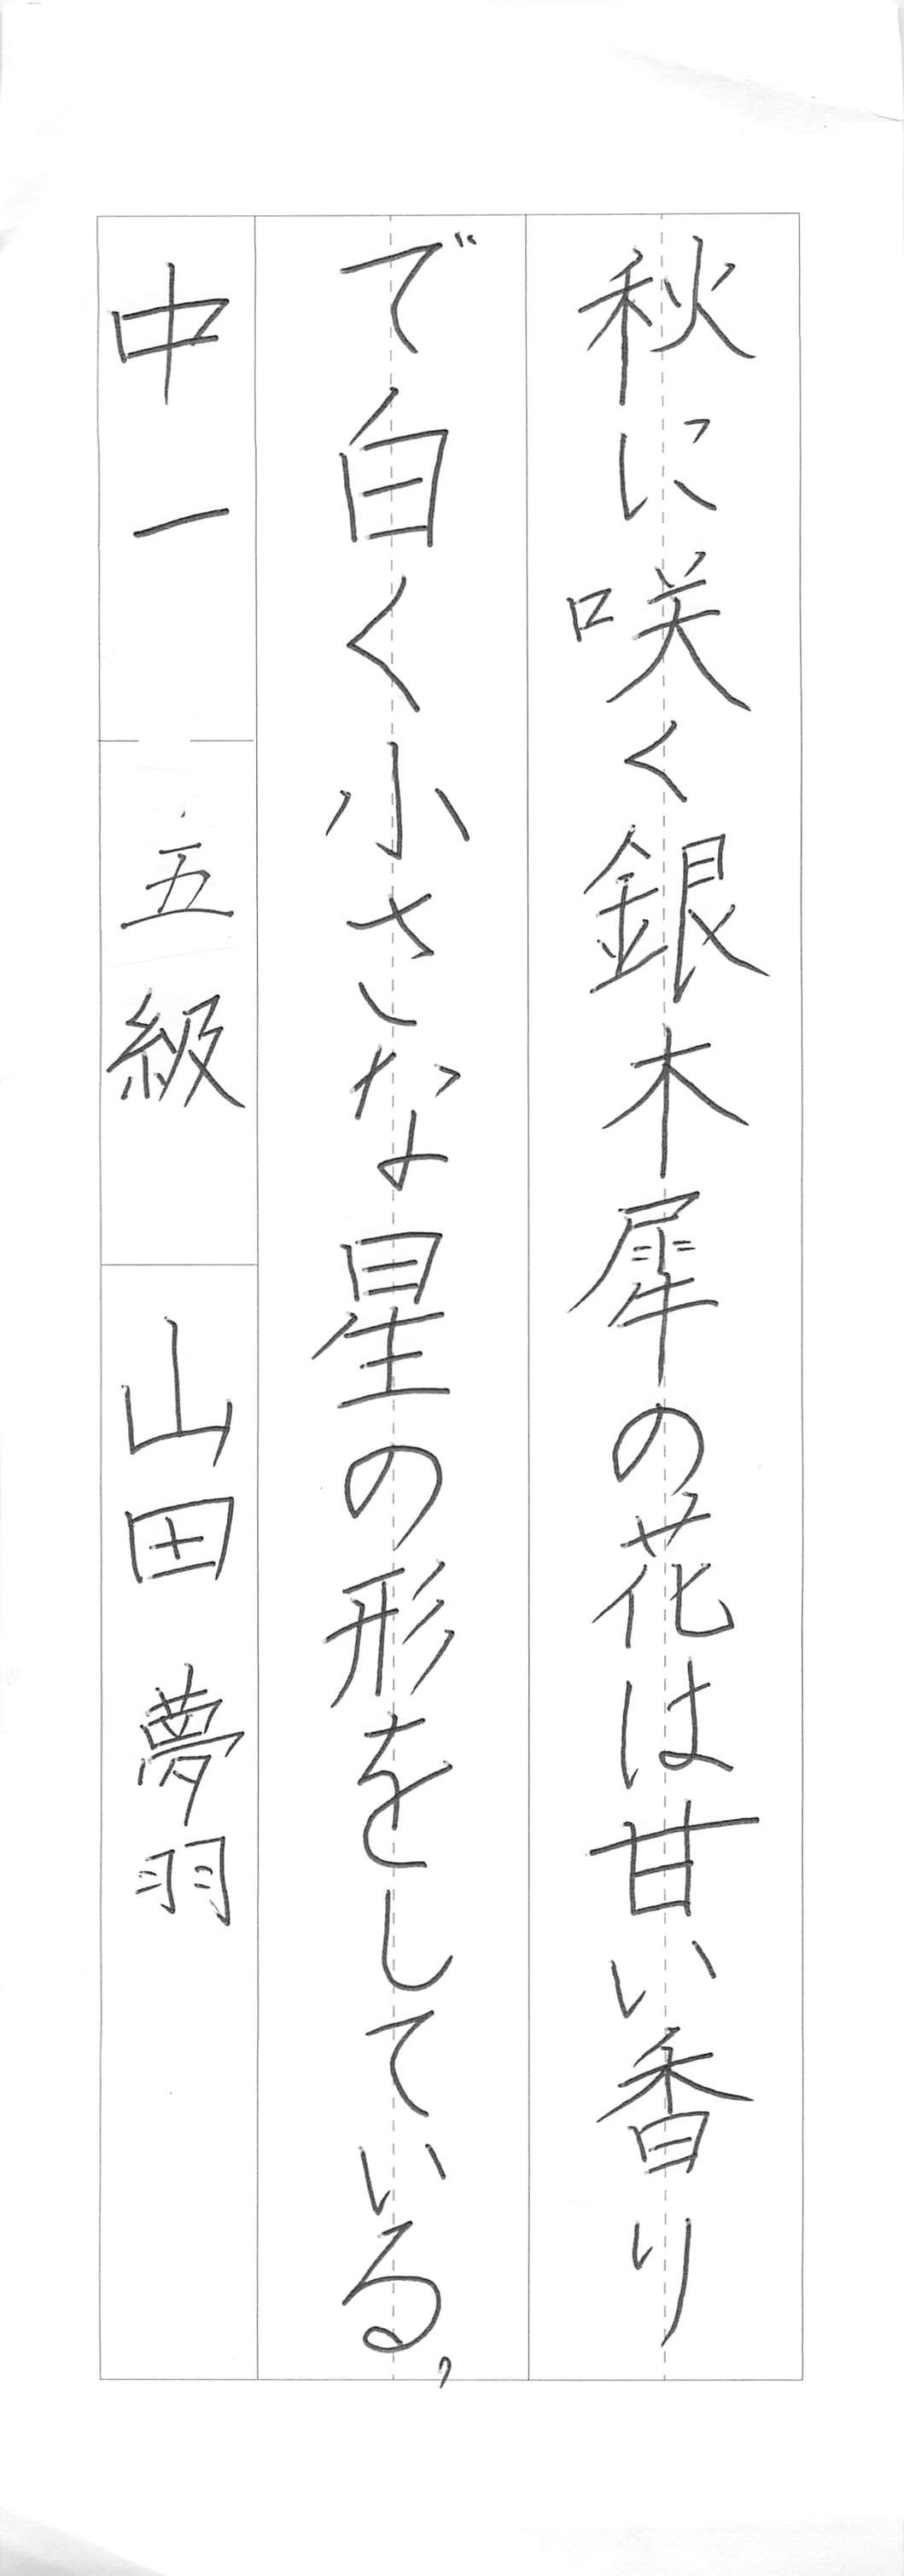 秋に咲く銀木犀の花は甘い香り
で白く小さな星の形をしている。
中一 五級 山田 夢羽